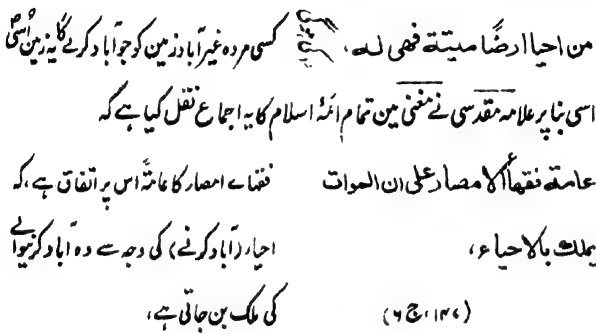 من احیا ارضًا میتة فهی له، کسی مردہ غیر آباد زمین کو جو آباد کریگا یہ زمین اُسی
اسی بنا پر علامہ مقدسی نے مغنی مین تمام ائمۂ اسلام کا یہ اجماع نقل کیا ہے کہ
عامة فقهاء الامصار علی ان الموات فقہاے امصار کا عامۃً اس پر اتفاق ہے، کہ
یملك بالاحیاء، احیاء (آباد کرنے) کی وجہ سے وہ آباد کرنیوالے
(۱۴۷، ج ۶) کی ملک بن جاتی ہے،